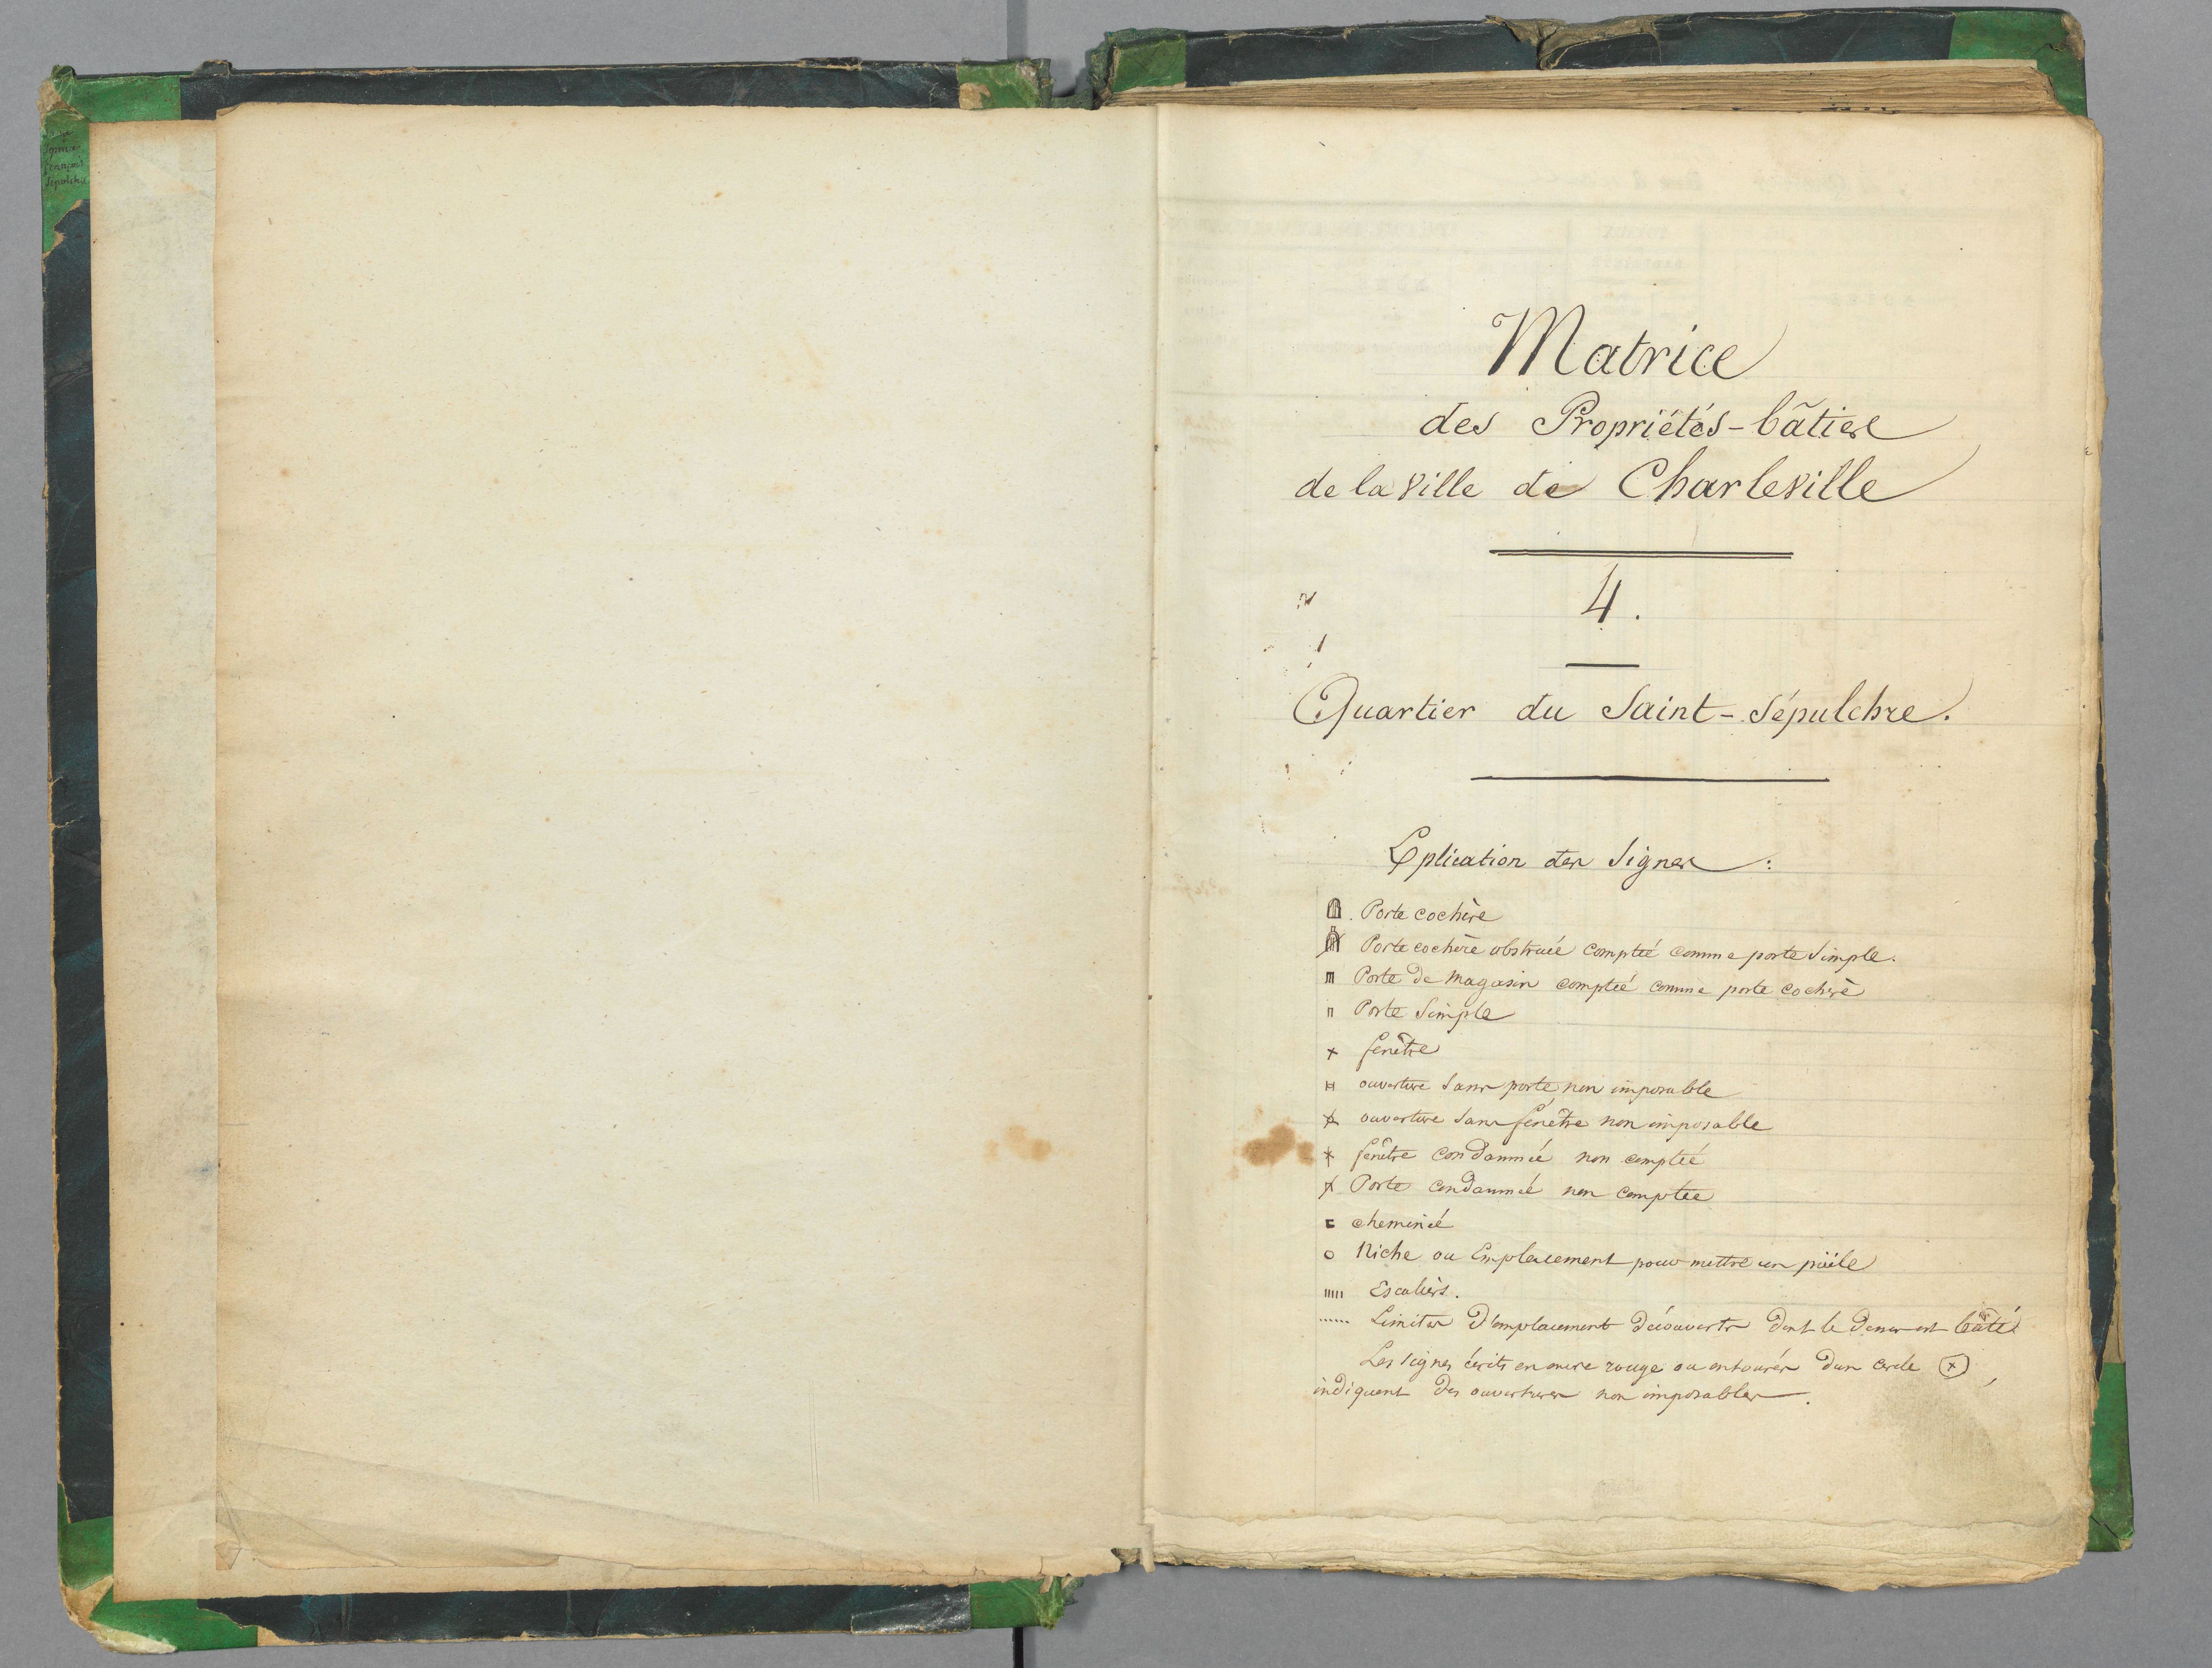 Matrice
des Propriétés-bâties
de la Ville de Charleville
4.
Quartier du Saint-Sépulchre.
Explication des Signes :
Porte cochère
Porte cochère obstruée comptée comme porte Simple.
Porte de Magasin comptée comme porte cochère
Porte Simple
fenêtre
ouverture Sans porte, non imposable
ouverture Sans fenêtre non imposable
fenêtre condamnée non comptée
Porte condamnée non comptée
cheminée
Niche ou Emplacement pour mettre un poële
Escaliers.
Limites d'emplacements découverts dont le dessus est bâti
Les Signes écrits en encre rouge ou entourés d'un cercle
indiquent des ouvertures non imposables.
français
Sépulchre